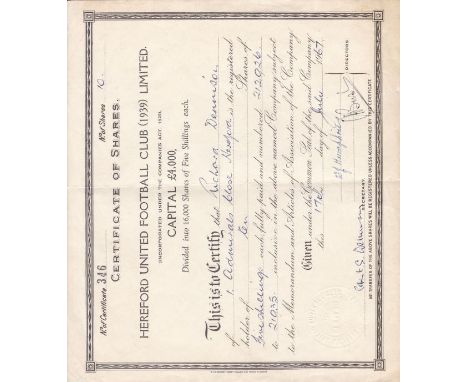 No of Certificate 346 No of Shares 10
CERTIFICATE OF SHARES.
HEREFORD UNITED FOOTBALL CLUB (1939) LIMITED.
INCORPORATED UNDER THE COMPANIES ACT, 1929.
CAPITAL £4,000,
Divided into 16,000 Shares of Five Shillings each.
This is to Certify that Victoria Dennison
of 1, Admirals Close Hereford is the registered
holder of ten Shares of
five shillings each, fully paid and numbered 212026
to 21035 inclusive in the above named Company subject
to the Memorandum and Articles of Association of the Company
Given under the Common Seal of the said Company
this 17th day of July 1967
DIRECTORS.
SECRETARY.
NO TRANSFER OF THE ABOVE SHARES WILL BE REGISTERED UNLESS ACCOMPANIED BY THIS CERTIFICATE